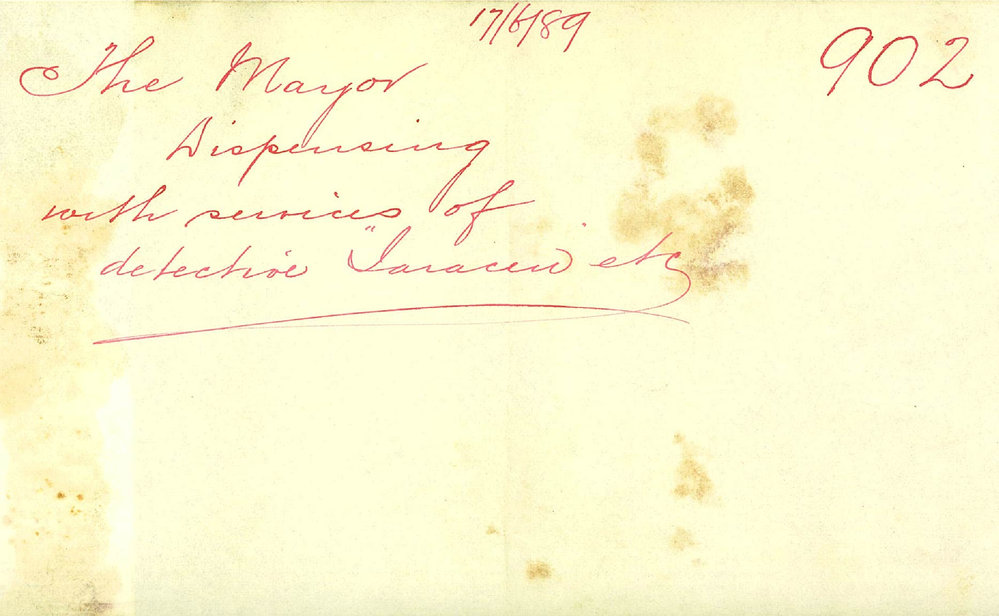 17/6/89
902
The Mayor
Dispensing
with services of
detective "Saracen" etc